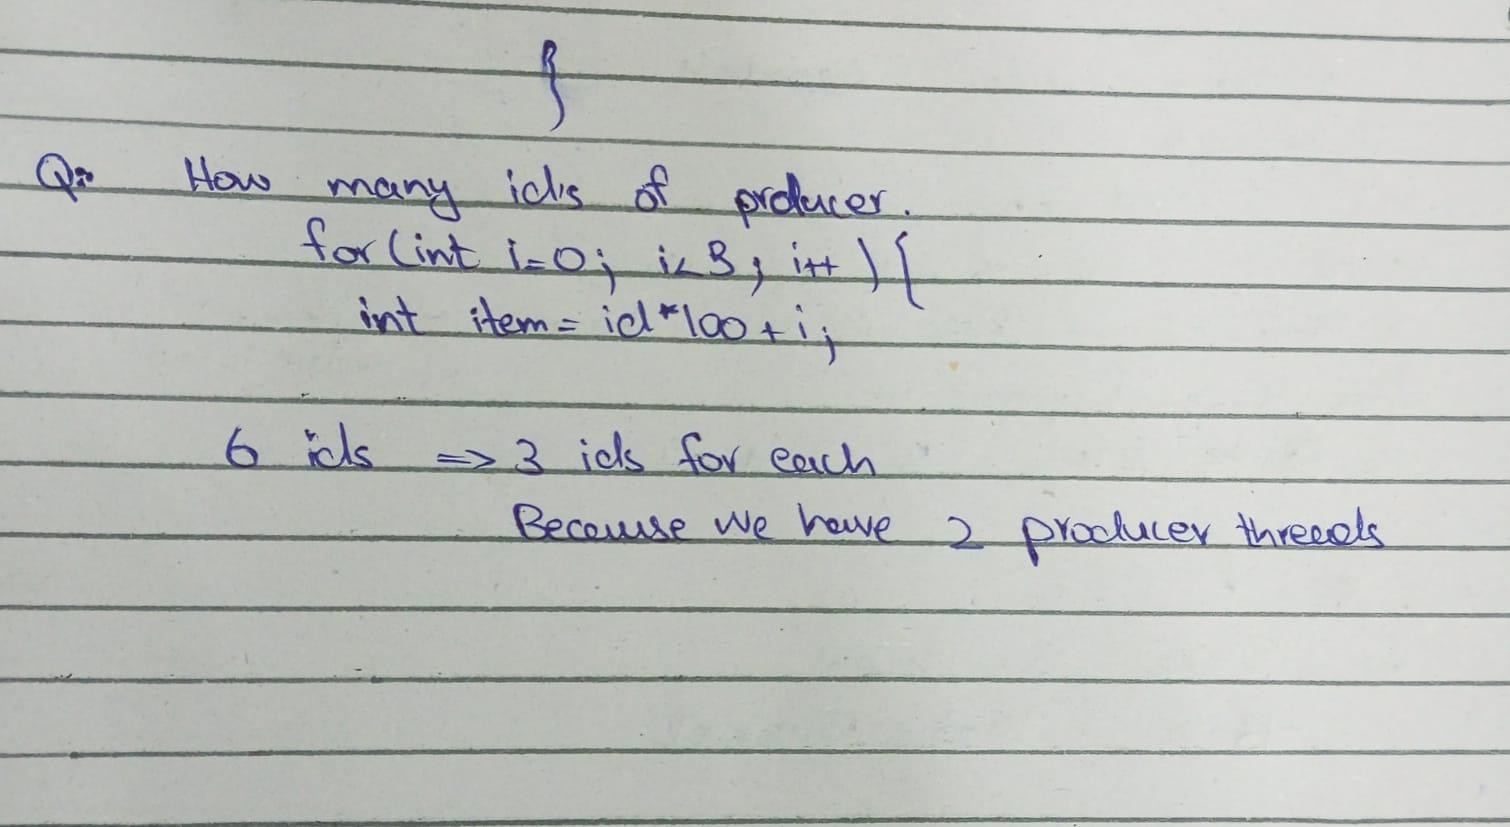 }
Q:- How many ids of producer.
for (int i=0; i<3; i++) {
int item = id*100+i;
6 ids => 3 ids for each
Because we have 2 producer threads